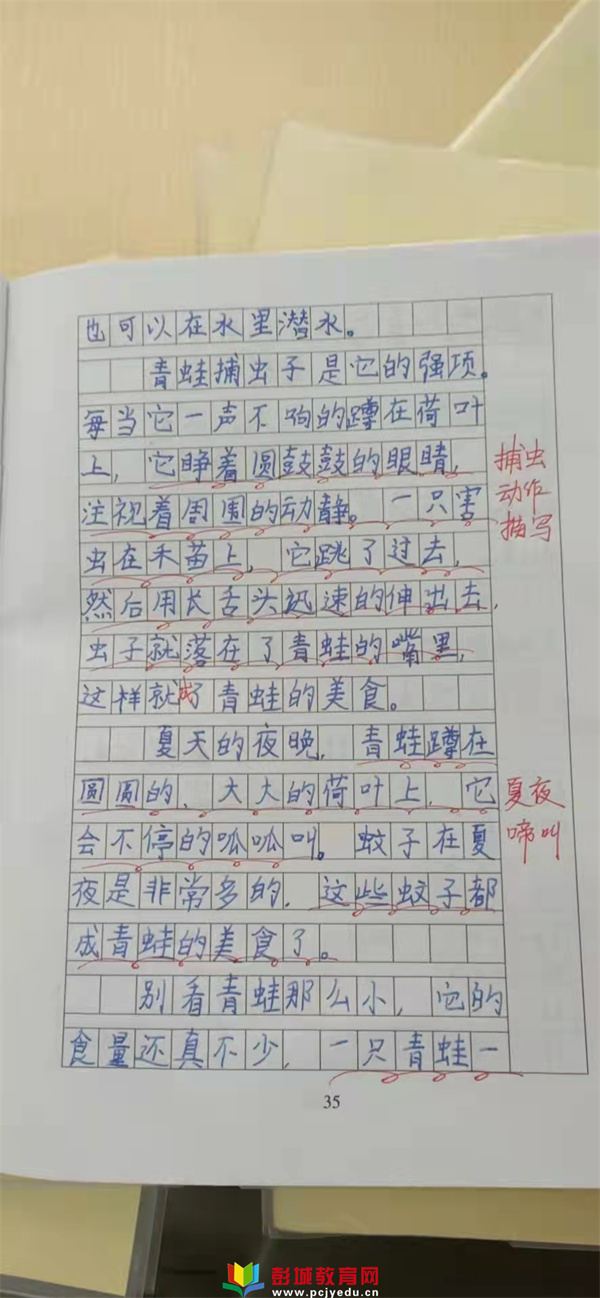 也可以在水里潜水。
青蛙捕虫子是它的强项。
每当它一声不响的蹲在荷叶
上，它睁着圆鼓鼓的眼睛，
注视着周围的动静。一只害
虫在禾苗上，它跳了过去，
然后用长舌头迅速的伸出去，
虫子就落在了青蛙的嘴里，
这样就成了青蛙的美食。
夏天的夜晚，青蛙蹲在
圆圆的、大大的荷叶上，它
会不停的呱呱叫。蚊子在夏
夜是非常多的，这些蚊子都
成青蛙的美食了。
别看青蛙那么小，它的
食量还真不少，一只青蛙一
捕虫
动作
描写
夏夜
啼叫
35
彭城教育网
www.pcjyedu.cn